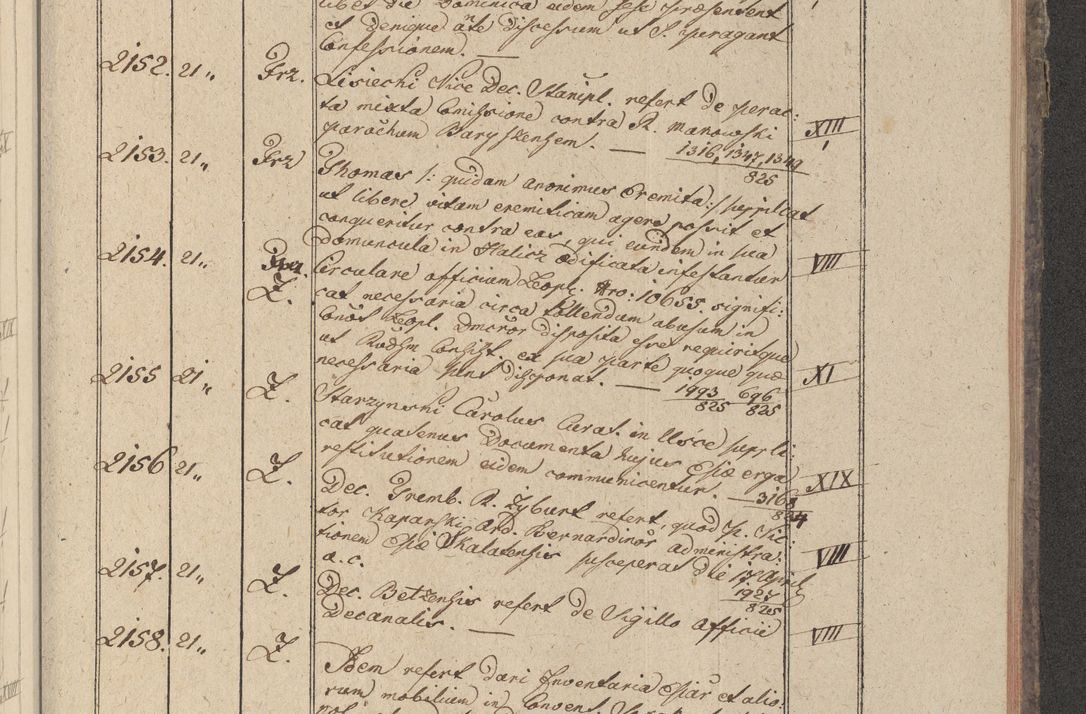 liber die Dominica eidem sese præsentent
et denique ante discessum ut S. peragant
Confessionem. —
2152. 21„ Prz. Lisiecki Vice Dec. Stanipl. refert de perac:
ta mixta Comissione contra R. Manowski XIII
parochum Baryszensem. — 1316, 1347, 1349
825
2153. 21„ Prz Thomas /: quidam anonimus Eremita :/ supplicat
ut libere vitam eremiticam agere possit et
conqueritur contra eas, qui eundem in sua
domuncula in Halicz ædificata infestantur VIII
2154. 21„ Prz. Z. Circulare officium Leopl. Nro: 10655. signifi:
cat necessaria circa tollendum abusum in
Conöt Leopl. Dmcrör disposita esse requiritque
ut Rödsm Consist. ex sua parte quoque quæ
necessaria sunt disponat. — 1993 696 XI
825 825
2155 21„ Z. Starzynski Carolus Curat. in Uście suppli:
cat quatenus Documenta hujus Eccsiæ erga
restitutionem eidem communicentur. — 3163 XIX
824
2156 21„ Z. Dec. Tremb. R. Zyburt refert, quod P. Vic:
tor Kaparski Ord. Bernardinör administra:
tionem Eccsiæ Skalatensis susceperat die 17 April VIII
a. c. 1927
825
2157. 21„ Z. Dec. Betzensis refert de Sigillo officii
Decanalis. — VIII
2158. 21„ Z. Idem refert dari Inventaria Eccsiär et alio
rum mobilium in Convent.